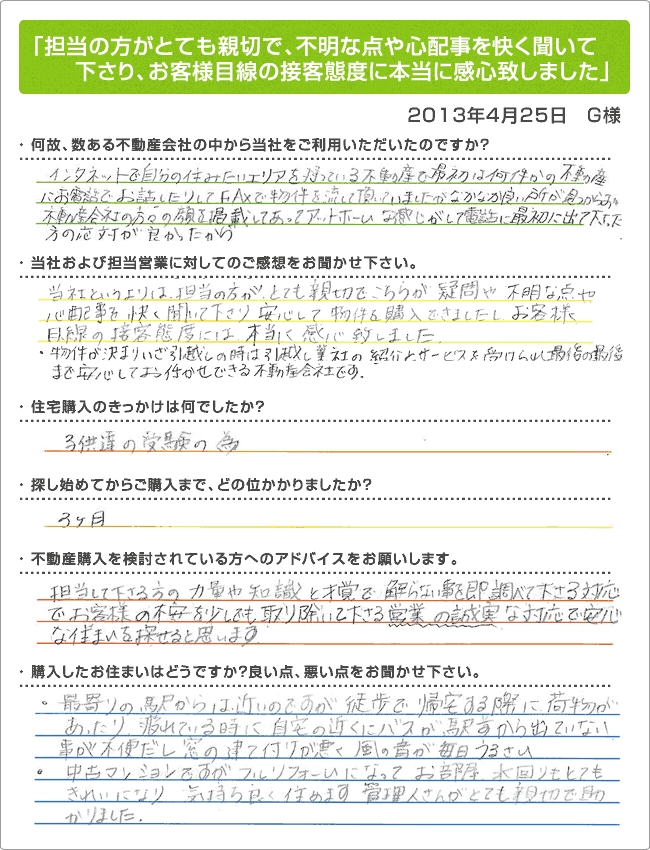 「担当の方がとても親切で、不明な点や心配事を快く聞いて
下さり、お客様目線の接客態度に本当に感心致しました」
2013年4月25日　G様
・何故、数ある不動産会社の中から当社をご利用いただいたのですか?
インタネットで自分の住みたいエリアを扱っている不動産で最初は何件かの不動産
にお電話でお話したりしてFAxで物件を流して頂いていましたがなかなか良い所が見つからず
不動産会社の方々の顔を掲載してあってアットホームな感じがして電話に最初に出て下さった
方の応対が良かったから
・当社および担当営業に対してのご感想をお聞かせ下さい。
当社というよりは、担当の方が、とても親切でこちらが疑問や不明な点や
心配事を快く聞いて下さり安心して物件を購入できましたしお客様
目線の接客態度には、本当に感心致しました。
・物件が決まりいざ引越しの時は引越し業社の紹介とサービスを受けられ最後の最後
まで安心してお任かせできる不動産会社です。
・住宅購入のきっかけは何でしたか?
子供達の受験の為
・探し始めてからご購入まで、どの位かかりましたか?
3ヶ月
・不動産購入を検討されている方へのアドバイスをお願いします。
担当して下さる方の力量や知識と才覚で解らない事を即調べて下さる対応
でお客様の不安を少しでも取り除いて下さる営業の誠実な対応で安心
な住まいを探せると思います
・購入したお住まいはどうですか?良い点、悪い点をお聞かせ下さい。
・最寄りの駅からは近いのですが徒歩で帰宅する際に荷物が
あったり疲れている時に自宅の近くにバスが駅前から出ていない
事が不便だし窓の建て付けが悪く風の音が毎日うるさい
・中古マンションですがフルリフォームになってお部屋、水回りもとても
きれいになり気持ち良く住めます管理人さんがとても親切で助
かりました。